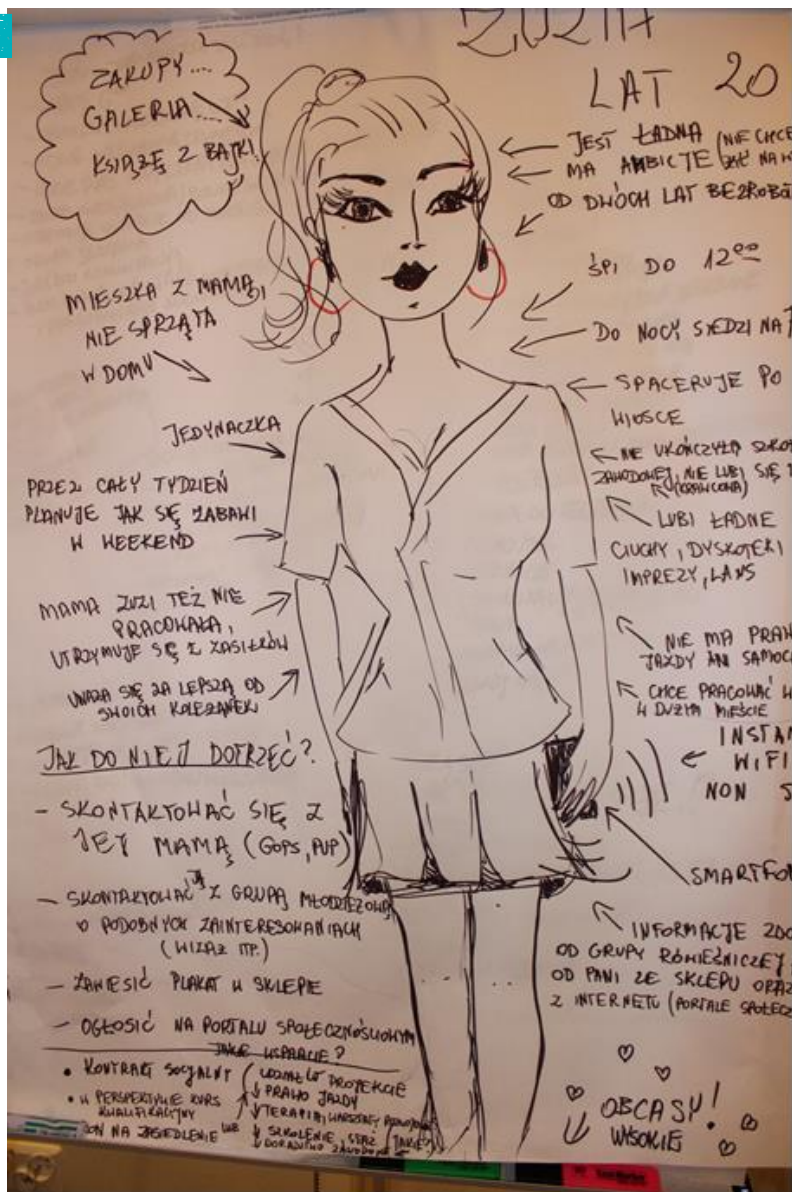 ZUZIA
LAT 20
ZAKUPY....
GALERIA....
KSIĄŻĘ Z BAJKI
JEST ŁADNA (NIE CHCE
MA AMBICJE
OD DWÓCH LAT
ŚPI DO 12⁰⁰
DO NOCY SIEDZI NA
SPACERUJE PO
WIOSCE
NIE UKOŃCZYŁA
ZAWODOWEJ, NIE LUBI SIĘ
(KRAWCOWA)
LUBI ŁADNE
CIUCHY, DYSKOTEKI
IMPREZY, LANS
NIE MA
JAZDY ANI
CHCE PRACOWAĆ
W DUŻYM MIEŚCIE
WIFI
NON
INFORMACJE
OD GRUPY RÓWIEŚNICZEJ
OD PANI ZE SKLEPU ORAZ
Z INTERNETU (PORTALE
OBCASY!
WYSOKIE
MIESZKA Z MAMĄ,
NIE SPRZĄTA
W DOMU
JEDYNACZKA
PRZEZ CAŁY TYDZIEŃ
PLANUJE JAK SIĘ ZABAWI
W WEEKEND
MAMA ZUZI TEŻ NIE
PRACOWAŁA,
UTRZYMUJE SIĘ Z ZASIŁKÓW
UWAŻA SIĘ ZA LEPSZĄ OD
SWOICH KOLEŻANEK
JAK DO NIEJ DOTRZEĆ?
- SKONTAKTOWAĆ SIĘ Z
JEJ MAMĄ (GOPS, PUP)
- SKONTAKTOWAĆ JĄ Z GRUPĄ MŁODZIEŻOWĄ
O PODOBNYCH ZAINTERESOWANIACH
(WIZAŻ ITP.)
- ZAWIESIĆ PLAKAT W SKLEPIE
- OGŁOSIĆ NA PORTALU SPOŁECZNOŚCIOWYM
JAKIE WSPARCIE?
• KONTRAKT SOCJALNY
• W PERSPEKTYWIE KURS
KWALIFIKACYJNY
NA ZASIEDLENIE LUB
UDZIAŁ W PROJEKCIE
↓ PRAWO JAZDY
↓ TERAPIA, WARSZTATY
↓ SZKOLENIE, STAŻ (JAKIE?)
↓ DORADZTWO